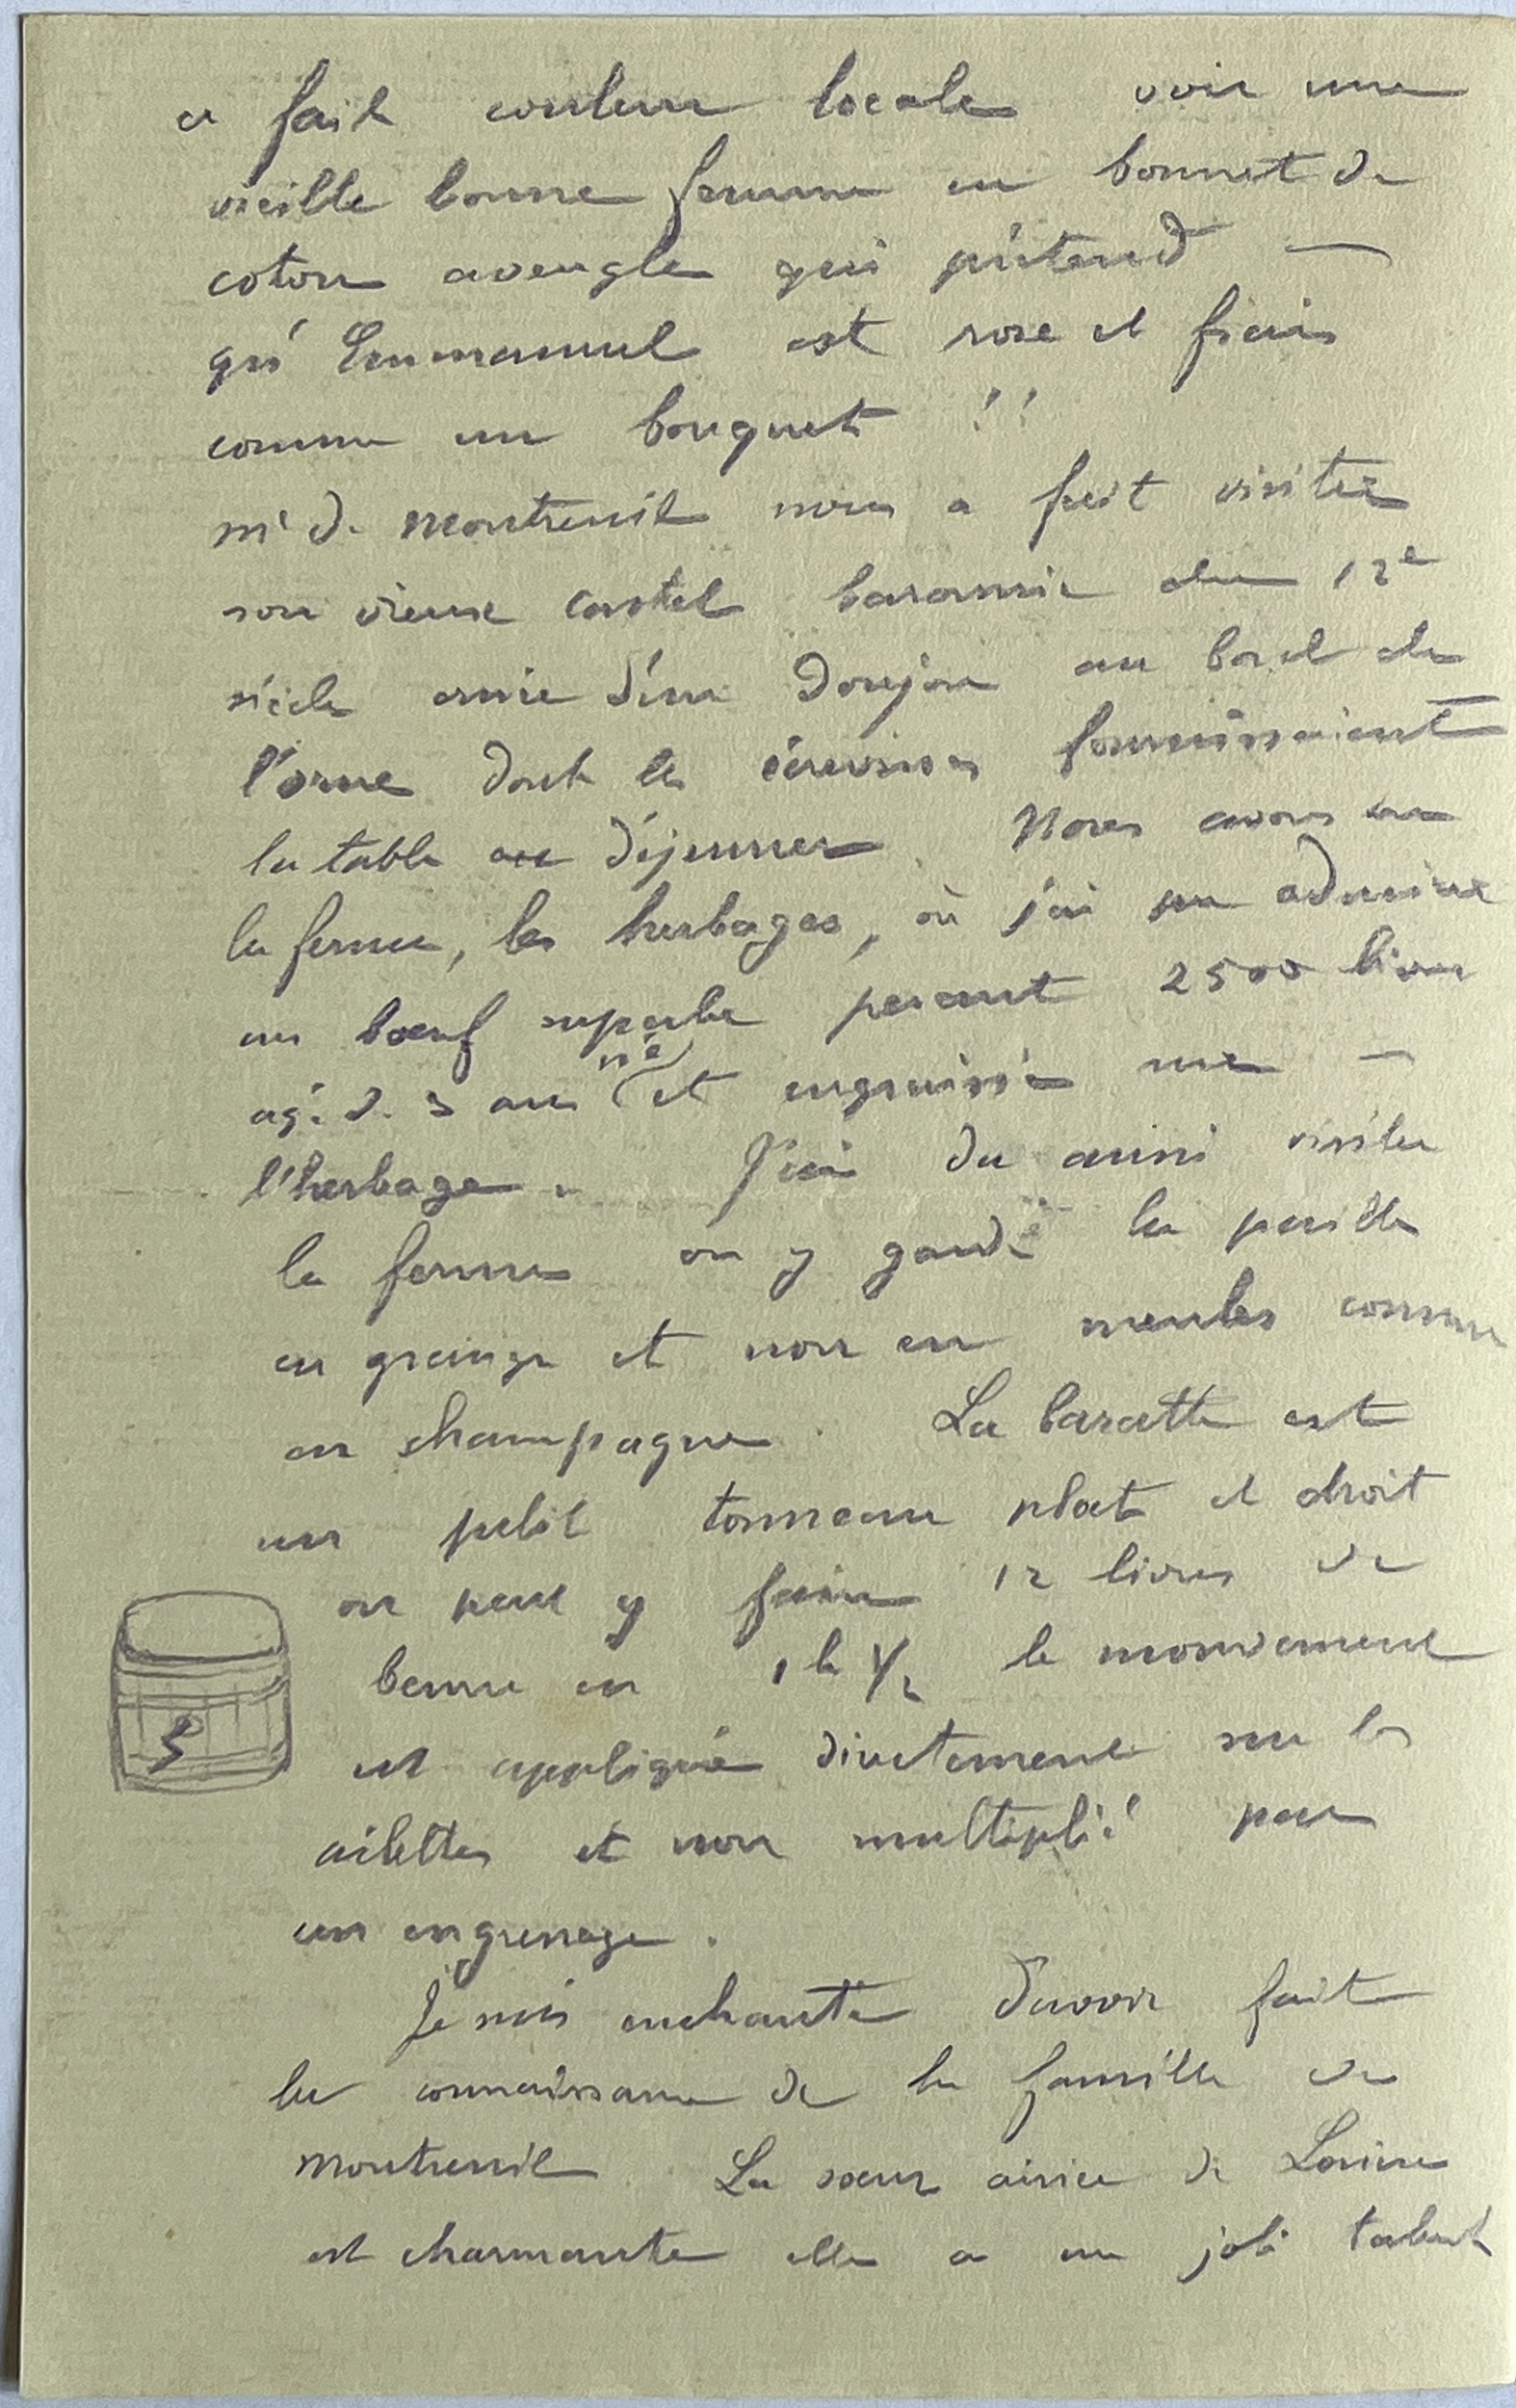 a fait couleur locale voir une
vieille bonne femme en bonnet de
coton aveugle qui prétend —
qu'Emmanuel est rose et frais
comme un bouquet !!
Mr de Montreuil nous a fait visiter
son vieux castel baronnie du 12e
siècle ornie d'un donjon au bord de
l'orne dont les écrevisses fournissaient
la table au déjeuner. Nous avons vu
la ferme, les herbages, où j'ai pu admirer
un bœuf superbe pesant 2500 livres
agé de 3 ans né et engraissé sur —
l'herbage. J'ai du aussi visiter
la ferme on y garde la paille
en grange et non en meules comme
en champagne. La baratte est
un petit tonneau plat et droit
on peut y faire 12 livres de
beurre en 1 h 1/2 le mouvement
est appliqué directement sur les
ailettes et non multiplié par
un engrenage.
Je suis enchanté d'avoir fait
la connaissance de la famille de
Montreuil. La sœur ainée de
est charmante elle a un joli talent